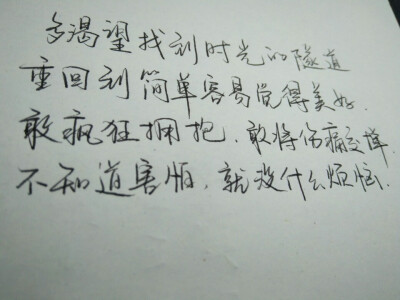 多渴望找到时光的隧道
重回到简单容易觉得美好.
敢疯狂拥抱.敢将伤痛交择
不知道害怕.就没什么烦恼.